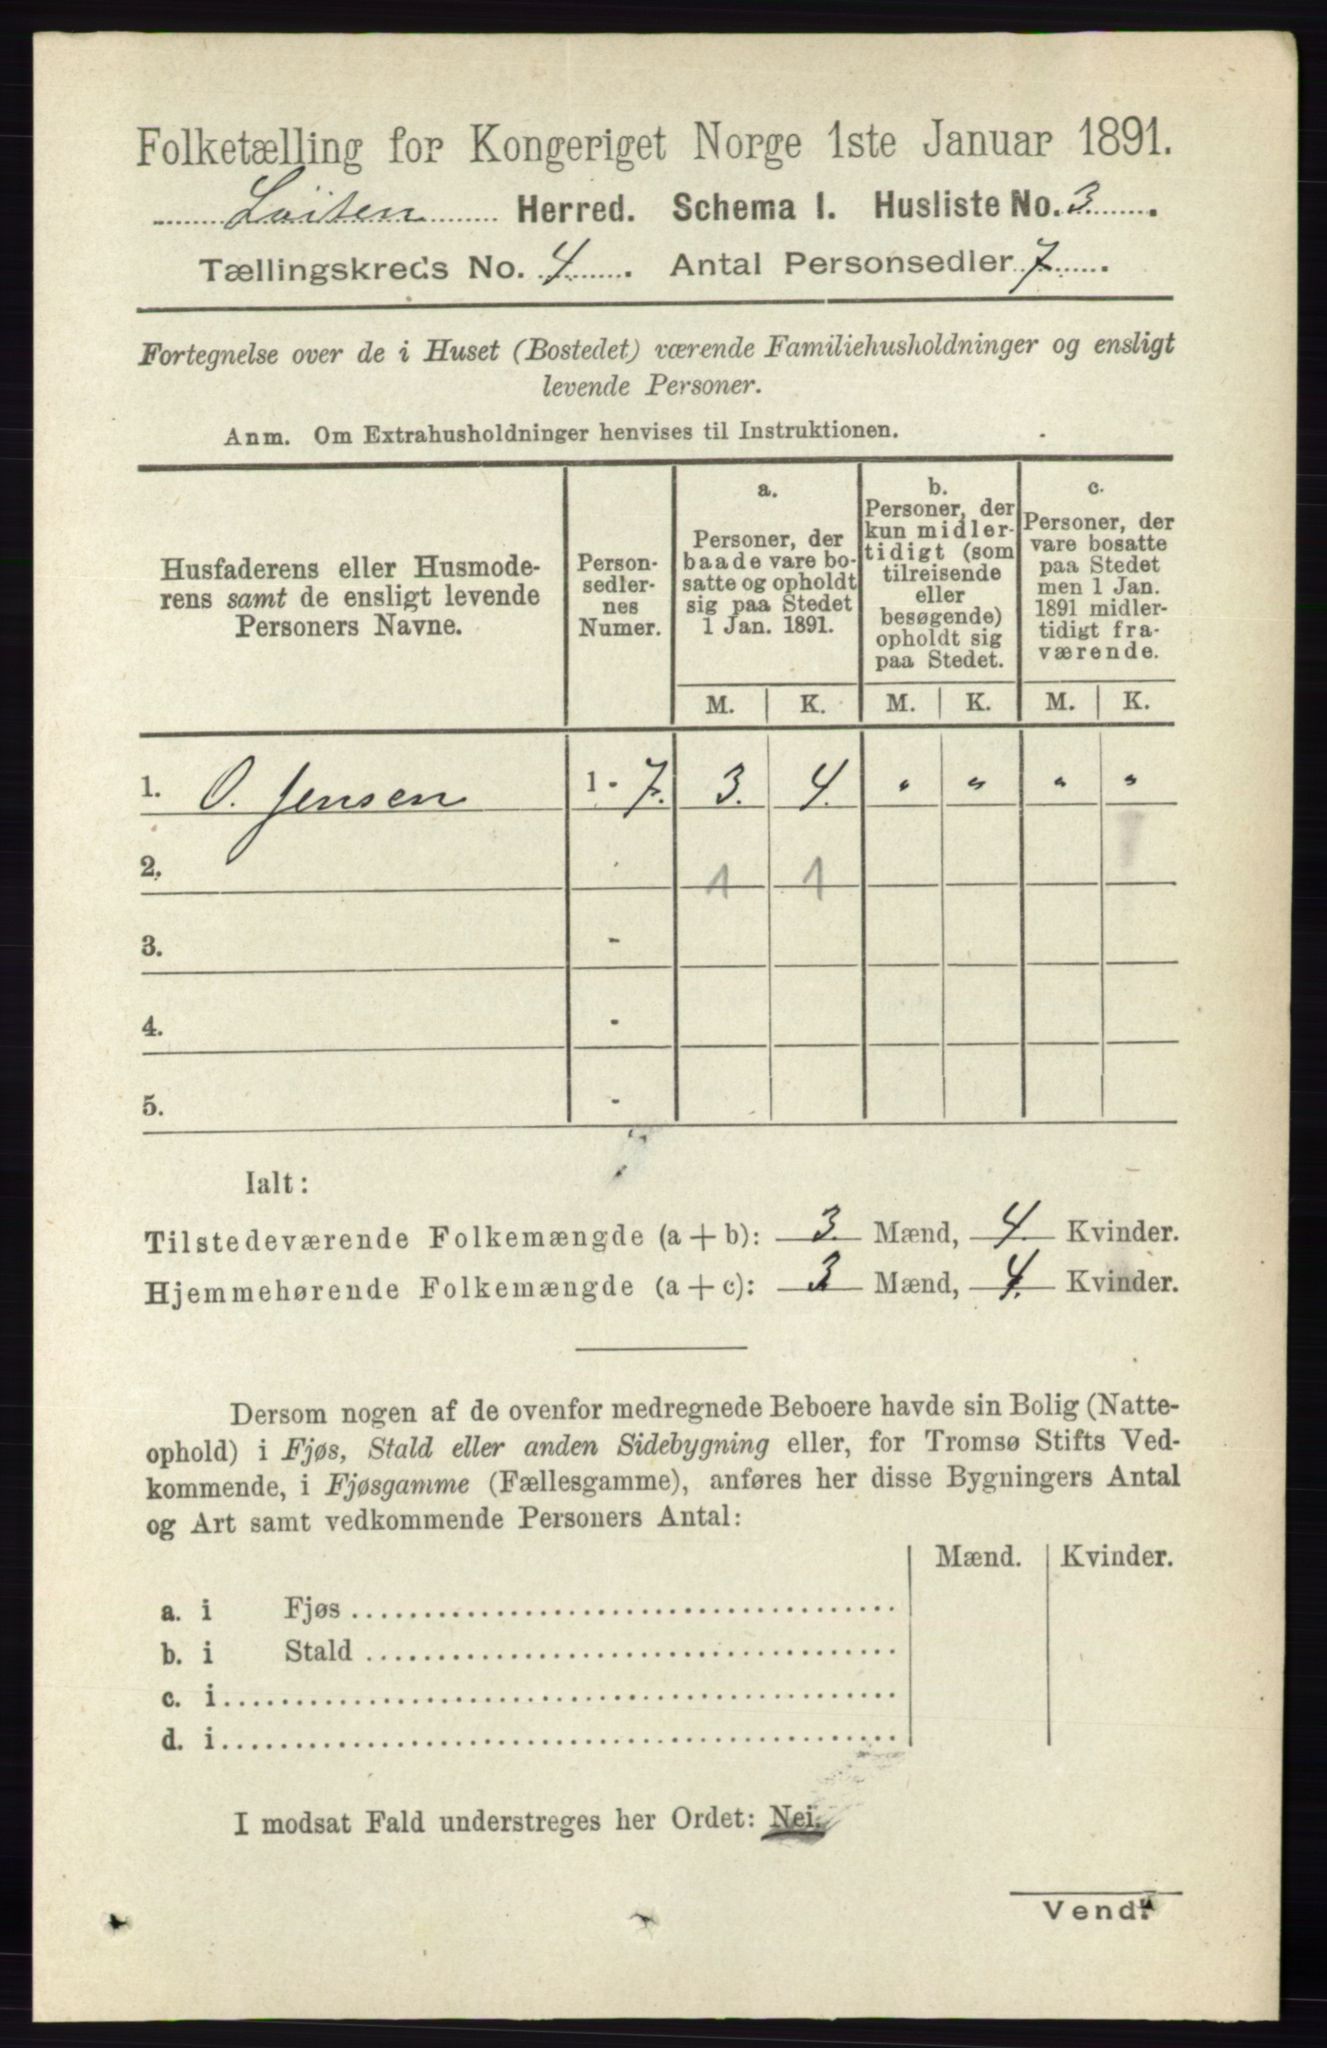 Folketælling for Kongeriget Norge 1ste Januar 1891.
Löiten Herred. Schema I. Husliste No. 3.
Tællingskreds No. 4. Antal Personsedler 7.
Fortegnelse over de i Huset (Bostedet) værende Familiehusholdninger og ensligt
levende Personer.
Anm. Om Extrahusholdninger henvises til Instruktionen.
Husfaderens eller Husmode-
rens samt de ensligt levende
Personers Navne.
Person-
sedler-
nes
Numer.
a.
Personer, der
baade vare bo-
satte og opholdt
sig paa Stedet
1 Jan. 1891.
b.
Personer, der
kun midler-
tidigt (som
tilreisende
eller
besøgende)
opholdt sig
paa Stedet.
c.
Personer, der
vare bosatte
paa Stedet
men 1 Jan.
1891 midler-
tidigt fra-
værende.
M. K. M. K. M. K.
1. O. Jensen 1 - 7. 3. 4. " " " "
2. 1 1
3. -
4. -
5. -
Ialt:
Tilstedeværende Folkemængde (a + b): 3. Mænd, 4. Kvinder.
Hjemmehørende Folkemængde (a + c): 3 Mænd, 4. Kvinder.
Dersom nogen af de ovenfor medregnede Beboere havde sin Bolig (Natte-
ophold) i Fjøs, Stald eller anden Sidebygning eller, for Tromsø Stifts Ved-
kommende, i Fjøsgamme (Fællesgamme), anføres her disse Bygningers Antal
og Art samt vedkommende Personers Antal:
Mænd. Kvinder.
a. i Fjøs
b. i Stald
c. i
d. i
I modsat Fald understreges her Ordet: Nei.
Vend!